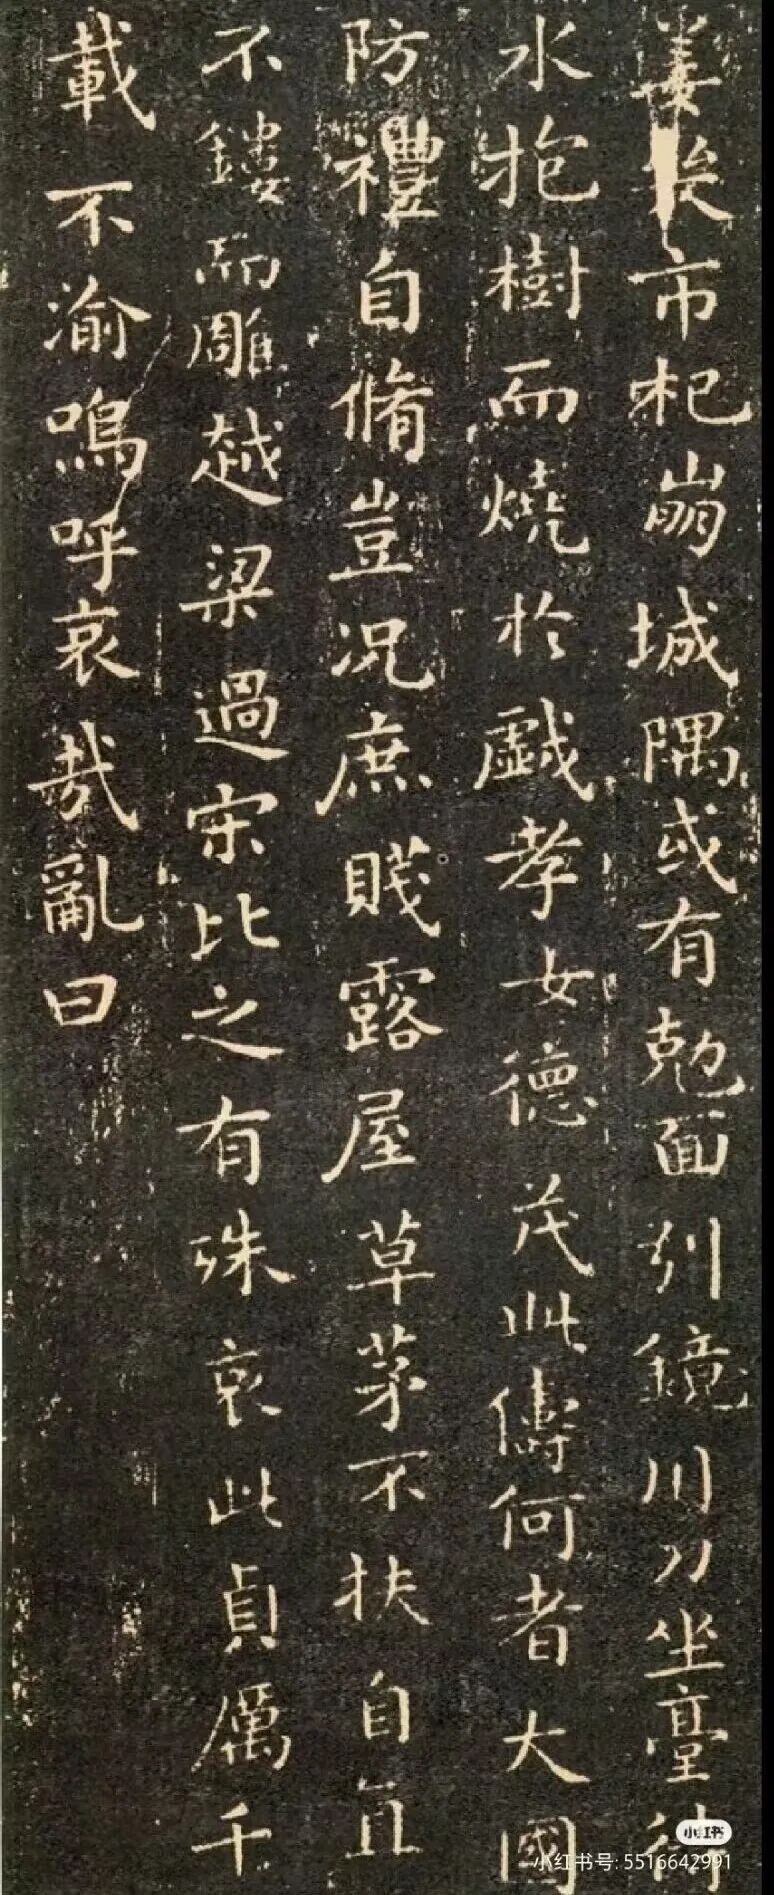 姜𠉀市杞崩城隅或有尅面引鏡川刀坐臺待
水抱樹而燒於戲孝女德茂此儔何者大國
防禮自脩豈況庶賤露屋草茅不扶自直
不鏤而雕越梁過宋比之有殊哀此貞厲千
載不渝嗚呼哀哉亂曰
小红书
小红书号: 5516642991